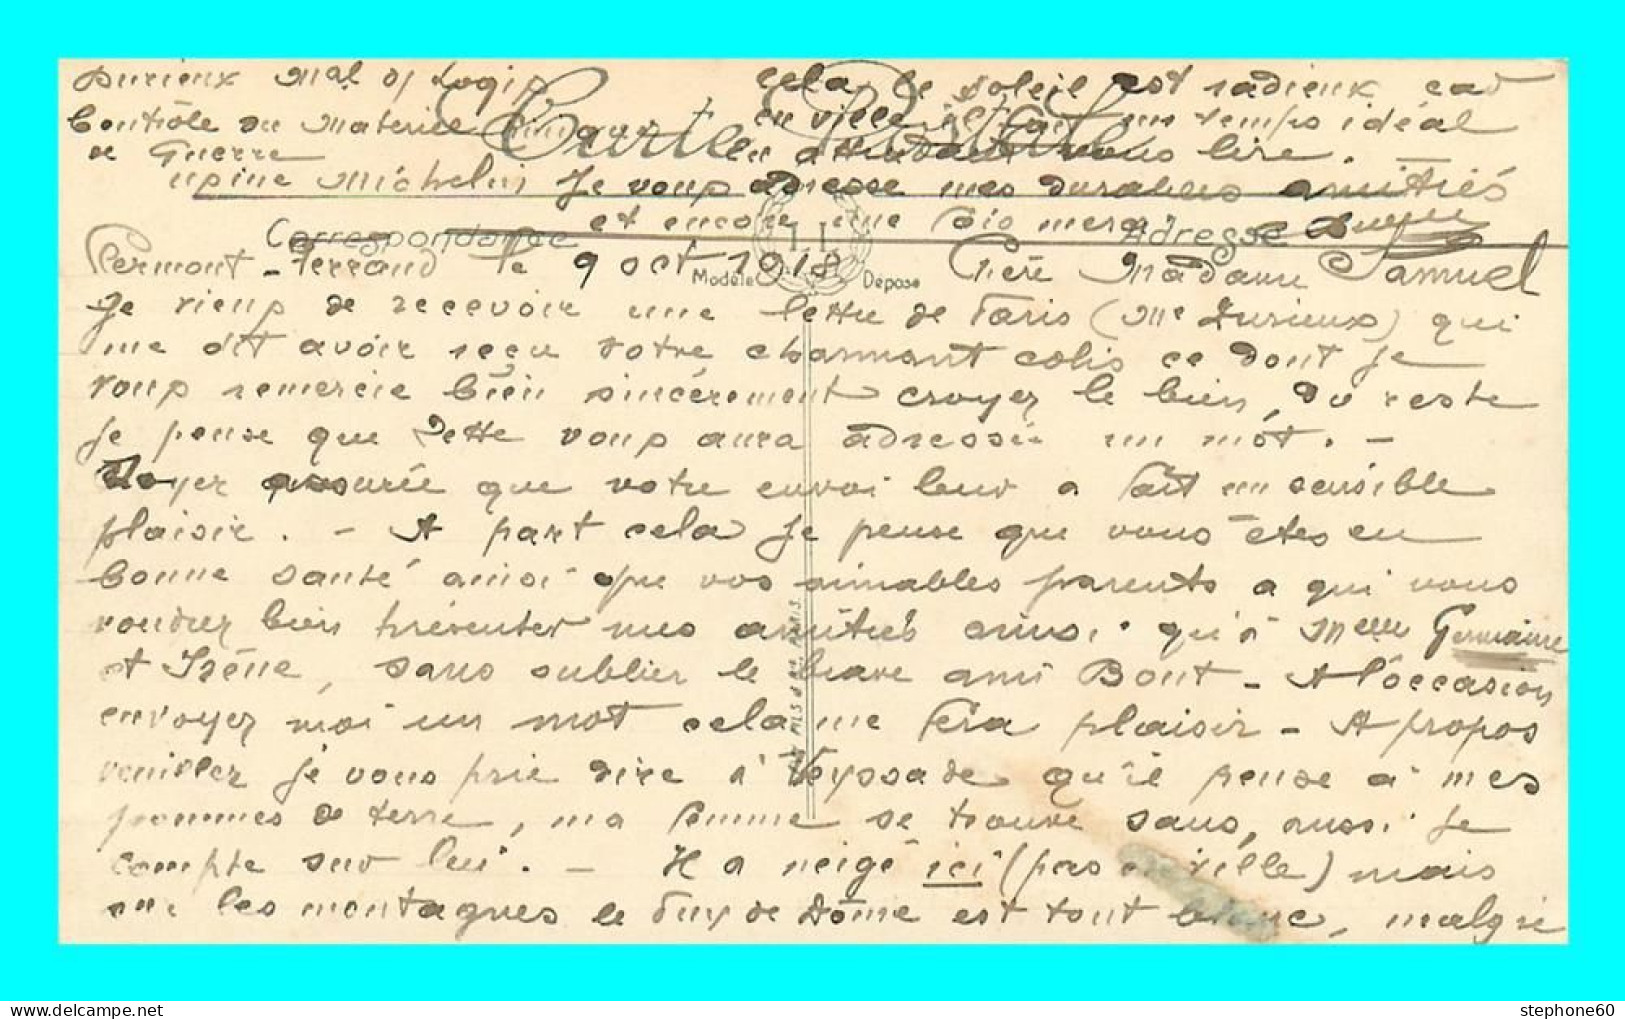 Durieux Mal des Logis
Contrôle du Matériel
de Guerre
usine Michelin
Carte Postale
Correspondance
Adresse
Modèle Déposé
Clermont-Ferrand le 9 oct 1918 Chère Madame Samuel
Je viens de recevoir une lettre de Paris (Me Durieux) qui
me dit avoir reçu votre charmant colis ce dont je
vous remercie bien sincèrement croyez le bien, du reste
je pense que Dette vous aura adressé un mot. -
Soyez assurée que votre envoi leur a fait un sensible
plaisir. - A part cela je pense que vous êtes en
bonne santé ainsi que vos aimables parents a qui vous
voudrez bien présenter mes amitiés ainsi qu'à Melles Germaine
et Irène, sans oublier le brave ami Bont - A l'occasion
envoyez moi un mot cela me fera plaisir - A propos
veuillez je vous prie dire à Veyssade qu'il pense à mes
pommes de terre, ma femme se trouve sans, aussi je
compte sur lui. - Il a neigé ici (pas en ville) mais
sur les montagnes le Puy de Dôme est tout blanc, malgré
cela le soleil est radieux car
en ville il fait un temps idéal
en attendant vous lire. -
Je vous adresse mes durables amitiés
et encore une fois merci
FILS
PARIS.
stephone60